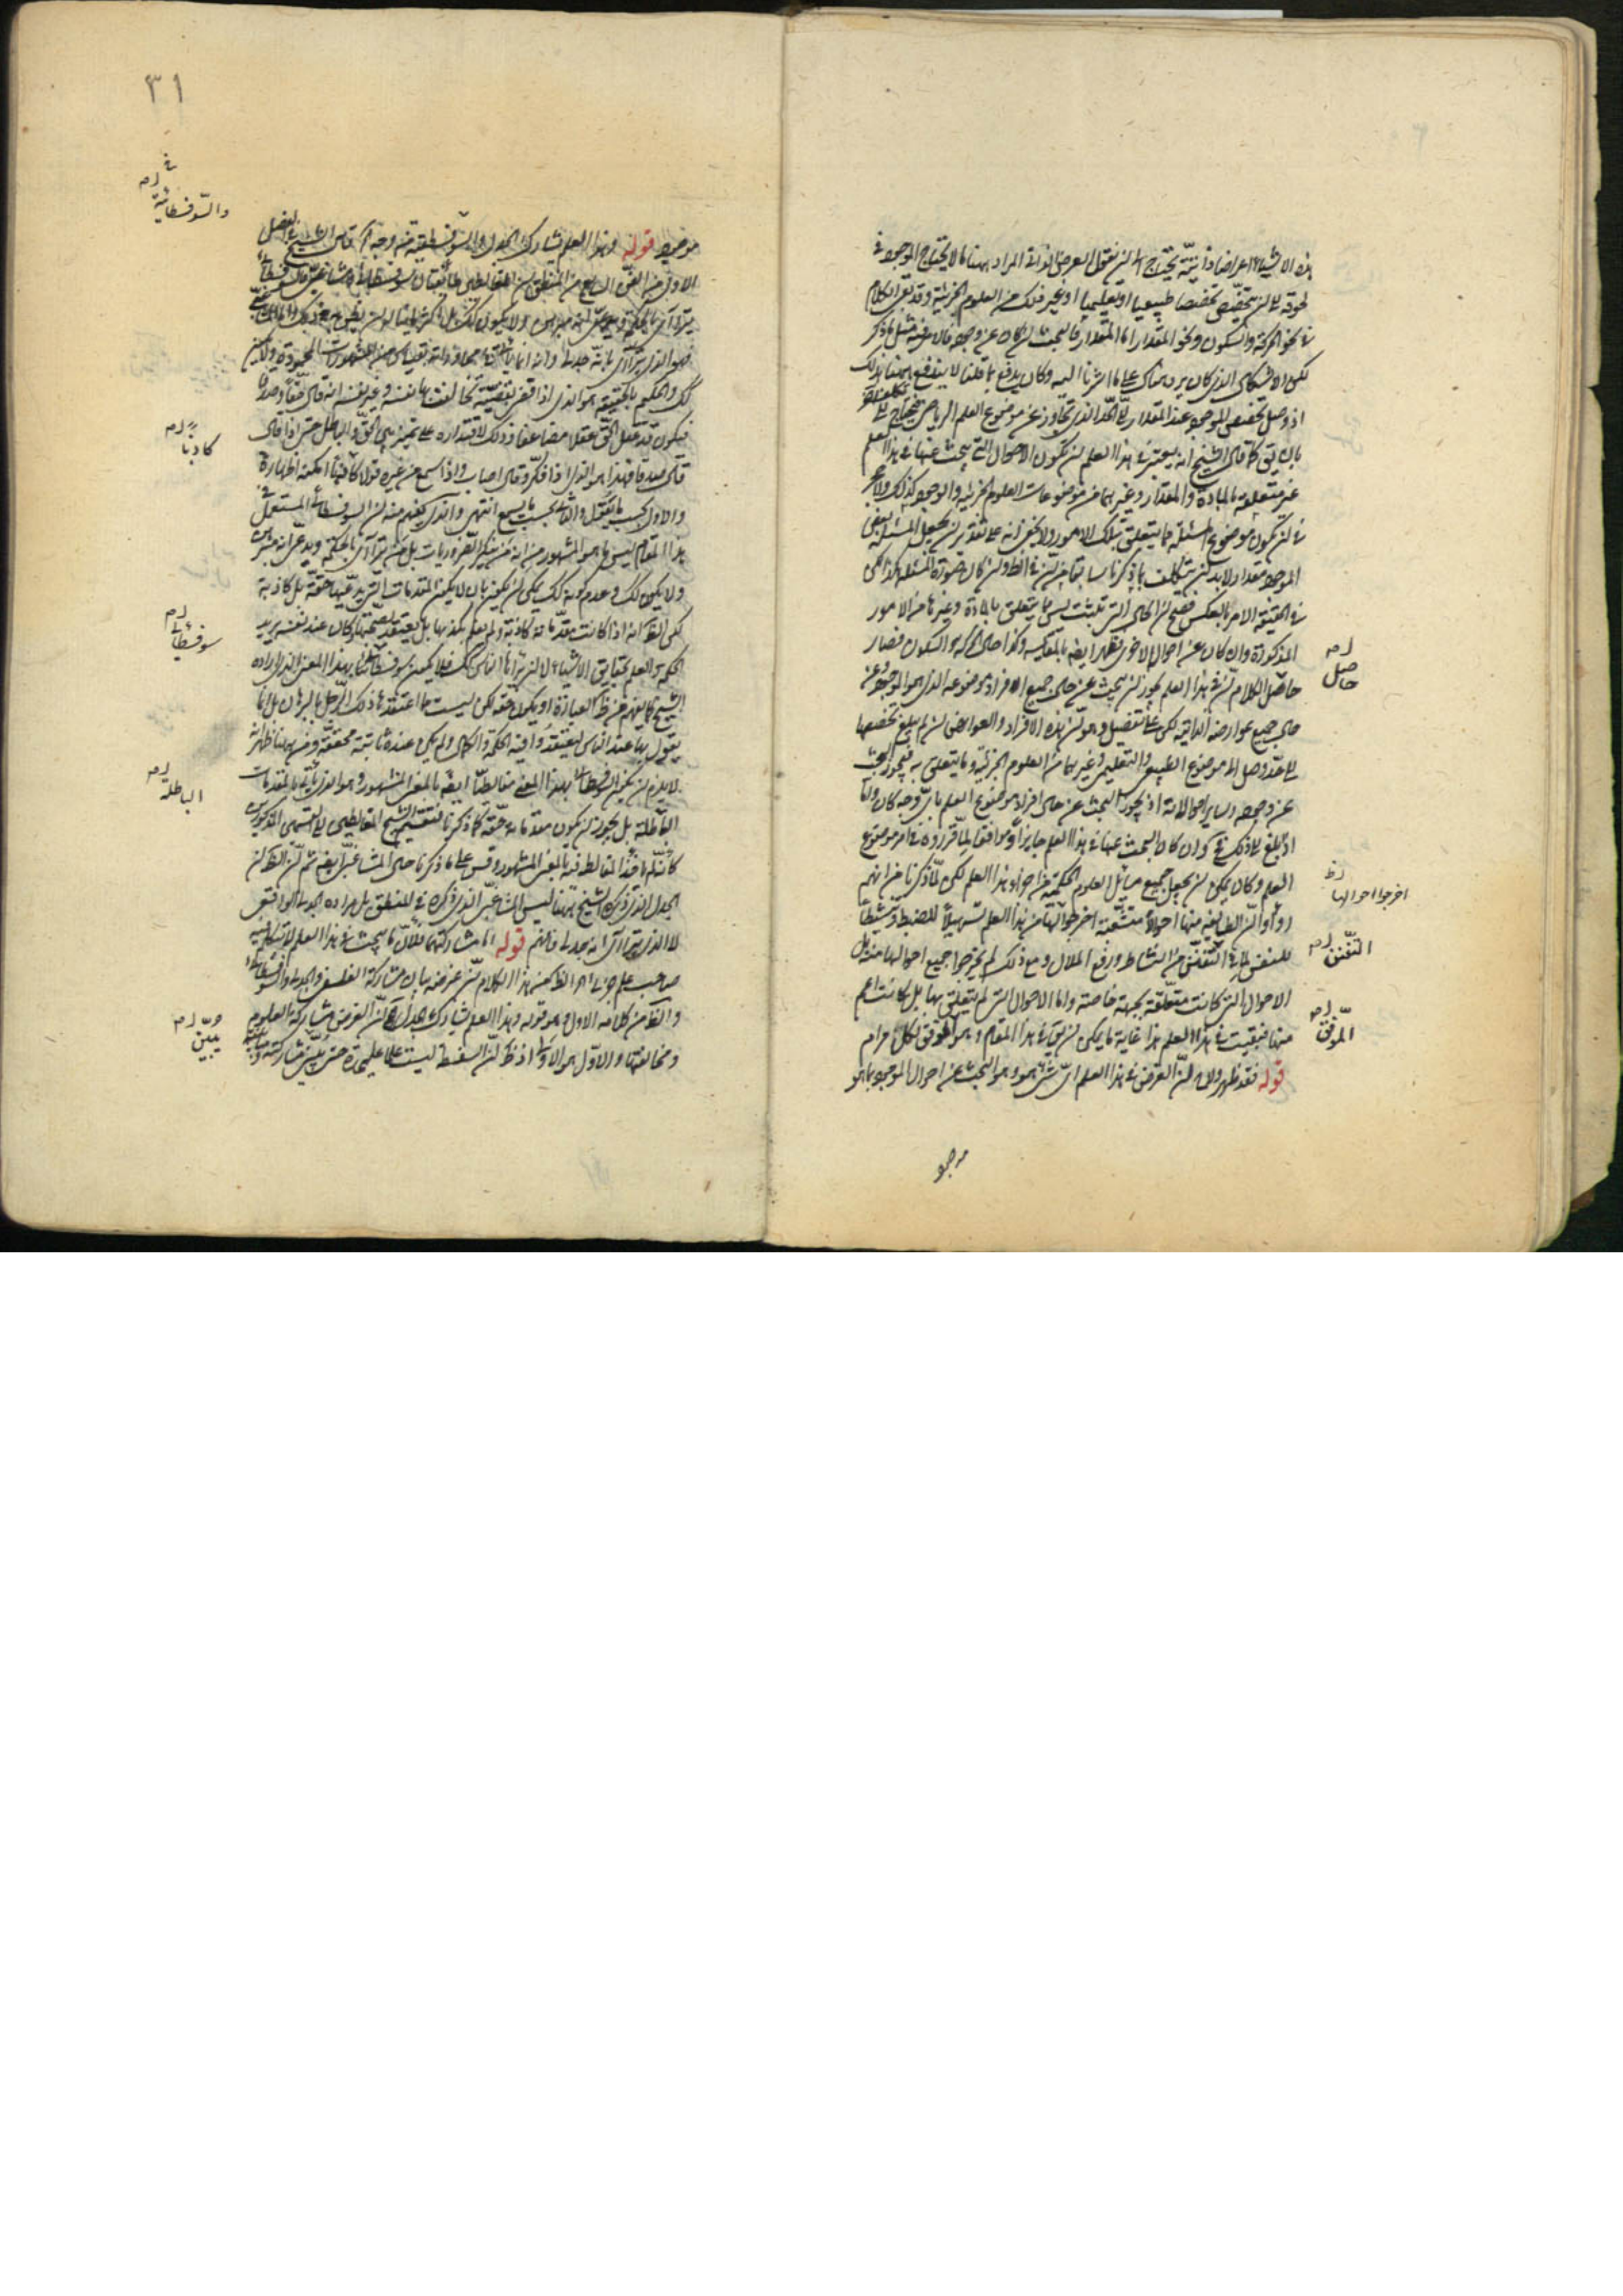 هذه الاشياء اعراضا ذاتية يحتاج الى ان يقول العرض الذاتى المراد ههنا ما لا يحتاج الموجود فى
لحوقه الى ان يتخصص تخصصا طبيعيا او تعليميا او غير ذلك من العلوم الجزئية وقد يقع الكلام
فى نحو الحركة والسكون ونحو المقدار اما المقدار فالبحث ان كان عن وجوده فالامر فيه مثل ما ذكر
لكن الاشكال الذى كان يرد هناك على ما اشرنا اليه وكان يدفع بما قلنا لا يندفع ههنا بذلك
اذ وصل تخصص الموجود عند المقدار الى الحد الذى تجاوز عن موضوع العلم الرياضى فيحتاج الى
بان يق كما قال الشيخ انه يعتبر فى هذا العلم ان يكون الاحوال التى يبحث عنها فى هذا العلم
غير متعلقة بالمادة والمقدار وغيرهما من موضوعات العلوم الجزئية والوجود كذلك ولا
فى ان يكون موضوع المسئلة مما يتعلق بتلك الامور ولا يخفى انه على تقدير ان يجعل المسئلة بعض
الموجود مقدار لا بد ان يتكلف بما ذكرنا سابقا من ان فى الظ وان كان صورة المسئلة هكذا لكن
فى الحقيقة الامر بالعكس فيصح ان الحال التى تثبت ليس مما يتعلق بالمادة وغيرها من الامور
المذكورة وان كان عن احواله الاخرى فظهر ايضا بالمقايسه وكذا حال الحركة والسكون فصار
حاصل الكلام ان فى هذا العلم يجوز ان يبحث عن حال جميع الافراد موضوعه الذى هو الموجود وعن
حال جميع عوارضه الذاتية لكن على تفصيل وهو ان هذه الافراد والعوارض ان لم يبلغ تخصصها
الى حد وصل الى موضوع الطبيعى والتعليمى وغيرهما من العلوم الجزئية وما يتعلق به فيجوز البحث
عن وجوده وساير احوالاته اذ يجوز البحث عن حال افراد موضوع العلم باى وجه كان واما
اذ بلغ الى ذلك فح وان كان البحث عنها فى هذا العلم جايزا وموافقا لما قرروه فى امر موضوع
العلم وكان يمكن ان يجعل جميع مسائل العلوم الحكمية من اجزاء هذا العلم لكن لما ذكرنا من انهم
راوا ان لطايفة منها احوالا متشعبة اخرجوا لها من هذا العلم تسهيلا للضبط وتنشيطا
للنفس لما فى التفنن من النشاط ورفع الملال ومع ذلك لم يخرجوا جميع احوالها منه بل
الاحوال التى كانت متعلقة بجهة خاصة واما الاحوال التى لم يتعلق بها بل كانت اعم
منها فبقيت فى هذا العلم هذا غاية ما يمكن ان يق فى هذا المقام وهو الموفق لكل مرام
قوله فقد ظهر ولاح ان الغرض فى هذا العلم اى شئ هو وهو البحث عن احوال الموجود بما هو
حاصل
اخرجوا احوالها
التفنن
الموفق
٣١
موجود قوله وهذا العلم يشارك الجدل والسوفسطيقية من وجه اه قال الشيخ فى الفصل
الاول من الفن السابع من المنطق ان المغالطين طائفتان سوفسطائى ومشاغبى فالسوفسطائى
يترأى بالحكمة ويدعى انه مبرهن ولا يكون كذلك بل اكثر ما يناله ان يظن به ذلك واما المشاغبى
فهو الذى يترأى بانه جدلى وانه انما يأتى فى محاوراته بقياس من المشهورات المحمودة ولا يكون
كك والحكيم بالحقيقة هو الذى اذا قضى بقضية يخاطب بها نفسه وغير نفسه انه قال حقا وصدقا
فيكون قد عقل الحق عقلا مضاعفا وذلك لاقتداره على تمييز بين الحق والباطل حتى اذا قال
قال صدقا فهذا هو الذى اذا فكر وقال اصاب واذا سمع من غيره قولا كاذبا امكنه اظهاره
والاول بحسب ما يقول والثانى بحسب ما يسمع انتهى والذى يفهم منه ان السوفسطائى المستعمل فى
هذا المقام ليس ما هو المشهور من انه من ينكر الضروريات بل من يترأى بالحكمة ويدعى انه مبرهن
ولا يكون كك وعدم كونه كك يمكن ان يكون بان لا يكون المقدمات التى يدعيها حقة بل كاذبة
لكن الظ انه اذا كانت مقدماته كاذبة ولم يعلم كذبها بل يعتقد صحتها وكان عند نفسه يريد
الحكمة والعلم بحقايق الاشياء لا ان يترأى الناس كك فلا يكون سوفسطائيا بهذا المعنى الذى اراده
الشيخ كما يفهم من ظ العبارة او يكون حقه لكن ليست مما اعتقدها ذلك الرجل بالبرهان بل انما
يقول بها عند الناس ليعتقدوا فيه الحكمة والكمال ولم يكن عنده ثابتة محققة ومن ههنا ظهر انه
لا يلزم ان يكون السوفسطائى بهذا المعنى مغالطا ايضا بالمعنى المشهور وهو الذى يأتى بالمقدمات
الباطلة بل يجوز ان يكون مقدماته حقة كما ذكرنا فتقسيم الشيخ المغالطين الى القسمين المذكورين
الجدل الذى ذكره الشيخ ههنا ليس المشاغبى الذى ذكره فى المنطق بل مراده الجدلى الواقعى
لا الذى يترأى انه جدلى فافهم قوله اما مشاركتهما فلان ما يبحث فى هذا العلم لا يتكلم فيه
صاحب علم جزئى اه الظ من هذا الكلام ان غرضه بيان مشاركة الفلسفى والجدلى والسوفسطائى
والظ من كلامه الاول وهو قوله وهذا العلم يشارك الجدل اه ان الغرض مشاركة العلوم
ومخالفتها والاول هو الاولى اذ ظ ان السفسطة ليست علما عليحدة حتى يبين مشاركته
والسوفسطائية
كاذبا
سوفسطائيا
الباطلة
يبين